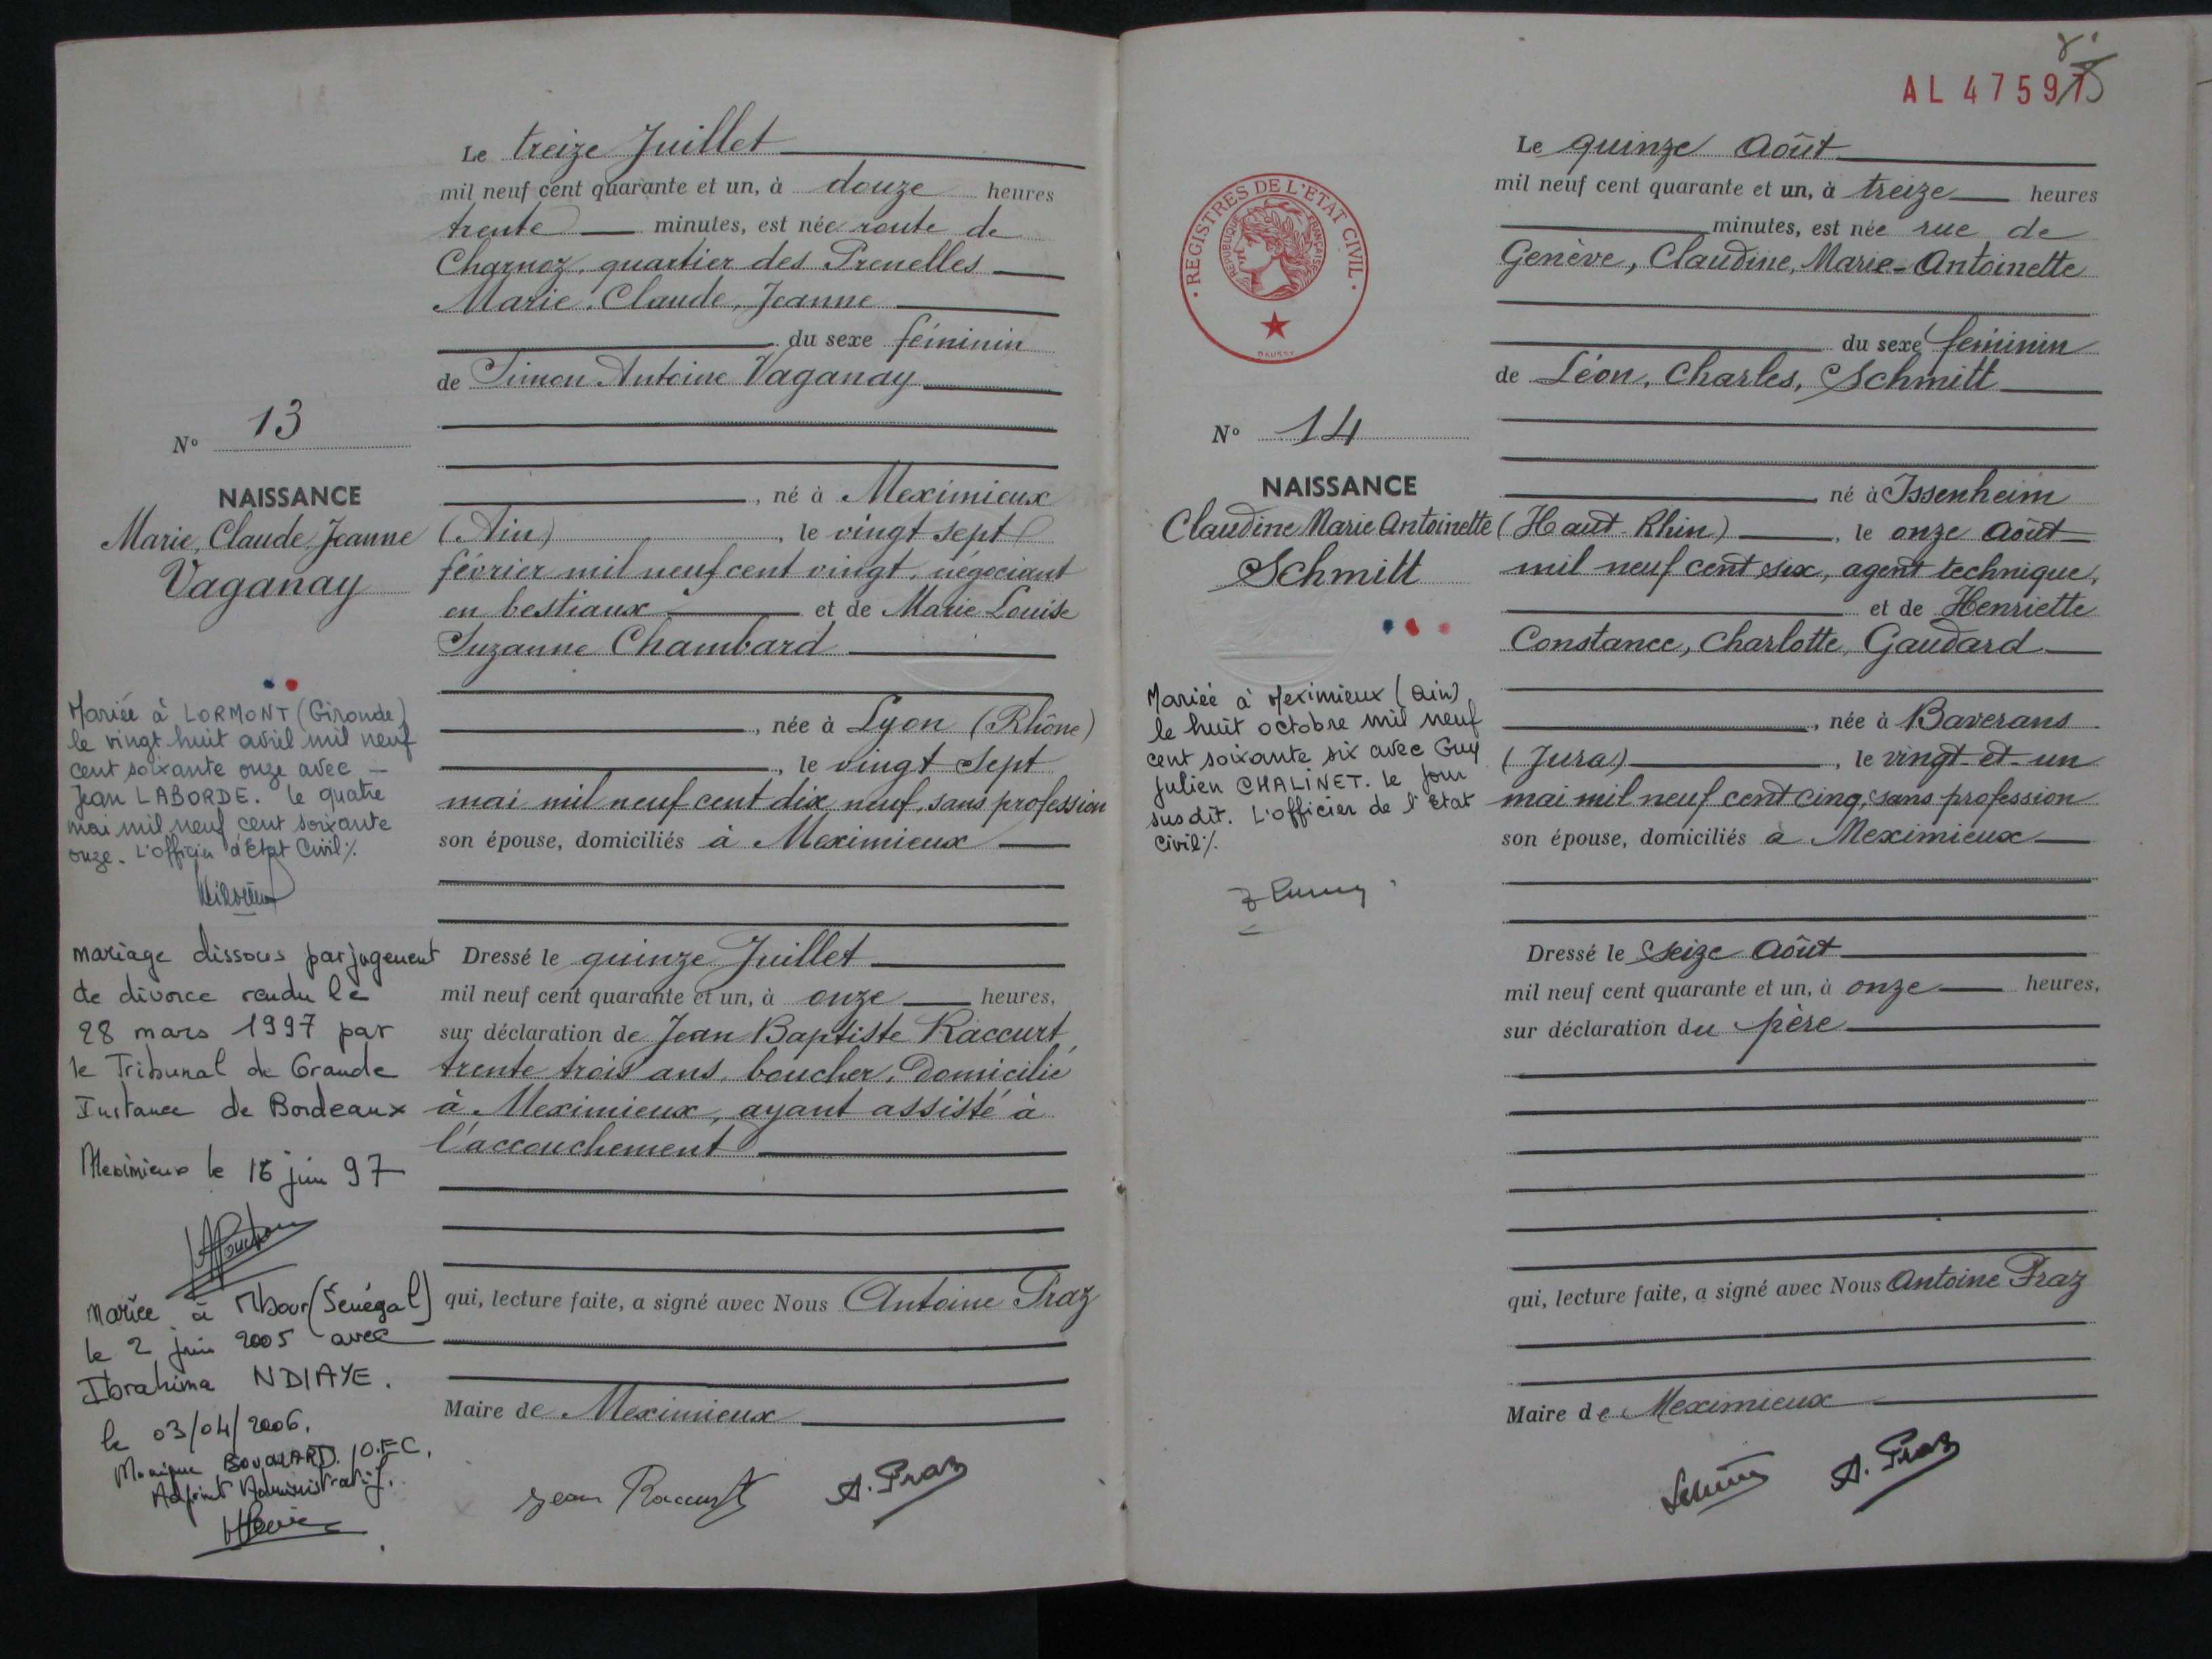 Le treize Juillet
mil neuf cent quarante et un, à douze heures
trente minutes, est née route de
Charnoz, quartier des Prenelles
Marie, Claude, Jeanne
du sexe féminin
de Simon Antoine Vaganay
N° 13
NAISSANCE
Marie, Claude, Jeanne
Vaganay
, né à Meximieux
(Ain) , le vingt sept
février mil neuf cent vingt, négociant
en bestiaux et de Marie Louise
Suzanne Chambard
, née à Lyon (Rhône)
, le vingt sept
mai mil neuf cent dix neuf, sans profession
son épouse, domiciliés à Meximieux
Mariée à LORMONT (Gironde)
le vingt huit avril mil neuf
cent soixante onze avec
Jean LABORDE. le quatre
mai mil neuf cent soixante
onze. L'officier d'Etat Civil ./.
mariage dissous par jugement
de divorce rendu le
28 mars 1997 par
le Tribunal de Grande
Instance de Bordeaux
Meximieux le 16 juin 97
Mariée à Mbour (Sénégal)
le 2 juin 2005 avec
Ibrahima NDIAYE.
le 03/04/2006.
Monique BOUCHARD. O.E.C.
Adjoint Administratif.
Dressé le quinze Juillet
mil neuf cent quarante et un, à onze heures,
sur déclaration de Jean Baptiste Raccurt,
trente trois ans, boucher, domicilié
à Meximieux, ayant assisté à
l'accouchement
qui, lecture faite, a signé avec Nous Antoine Praz
Maire de Meximieux
Jean Raccurt A. Praz
AL 47597
Le quinze Août
mil neuf cent quarante et un, à treize heures
minutes, est née rue de
Genève, Claudine, Marie-Antoinette
du sexe féminin
de Léon, Charles, Schmitt
REGISTRES DE L'ETAT CIVIL
REPUBLIQUE FRANÇAISE
N° 14
NAISSANCE
Claudine Marie Antoinette
Schmitt
né à Issenheim
(Haut Rhin) , le onze Août
mil neuf cent six, agent technique,
et de Henriette
Constance, Charlotte, Gaudard
, née à Baverans
(Jura) , le vingt-et-un
mai mil neuf cent cinq, sans profession
son épouse, domiciliés à Meximieux
Mariée à Meximieux (Ain)
le huit octobre mil neuf
cent soixante six avec Guy
Julien CHALINET. le jour
susdit. L'officier de l'Etat
Civil ./.
Dressé le seize Août
mil neuf cent quarante et un, à onze heures,
sur déclaration du père
qui, lecture faite, a signé avec Nous Antoine Praz
Maire de Meximieux
A. Praz